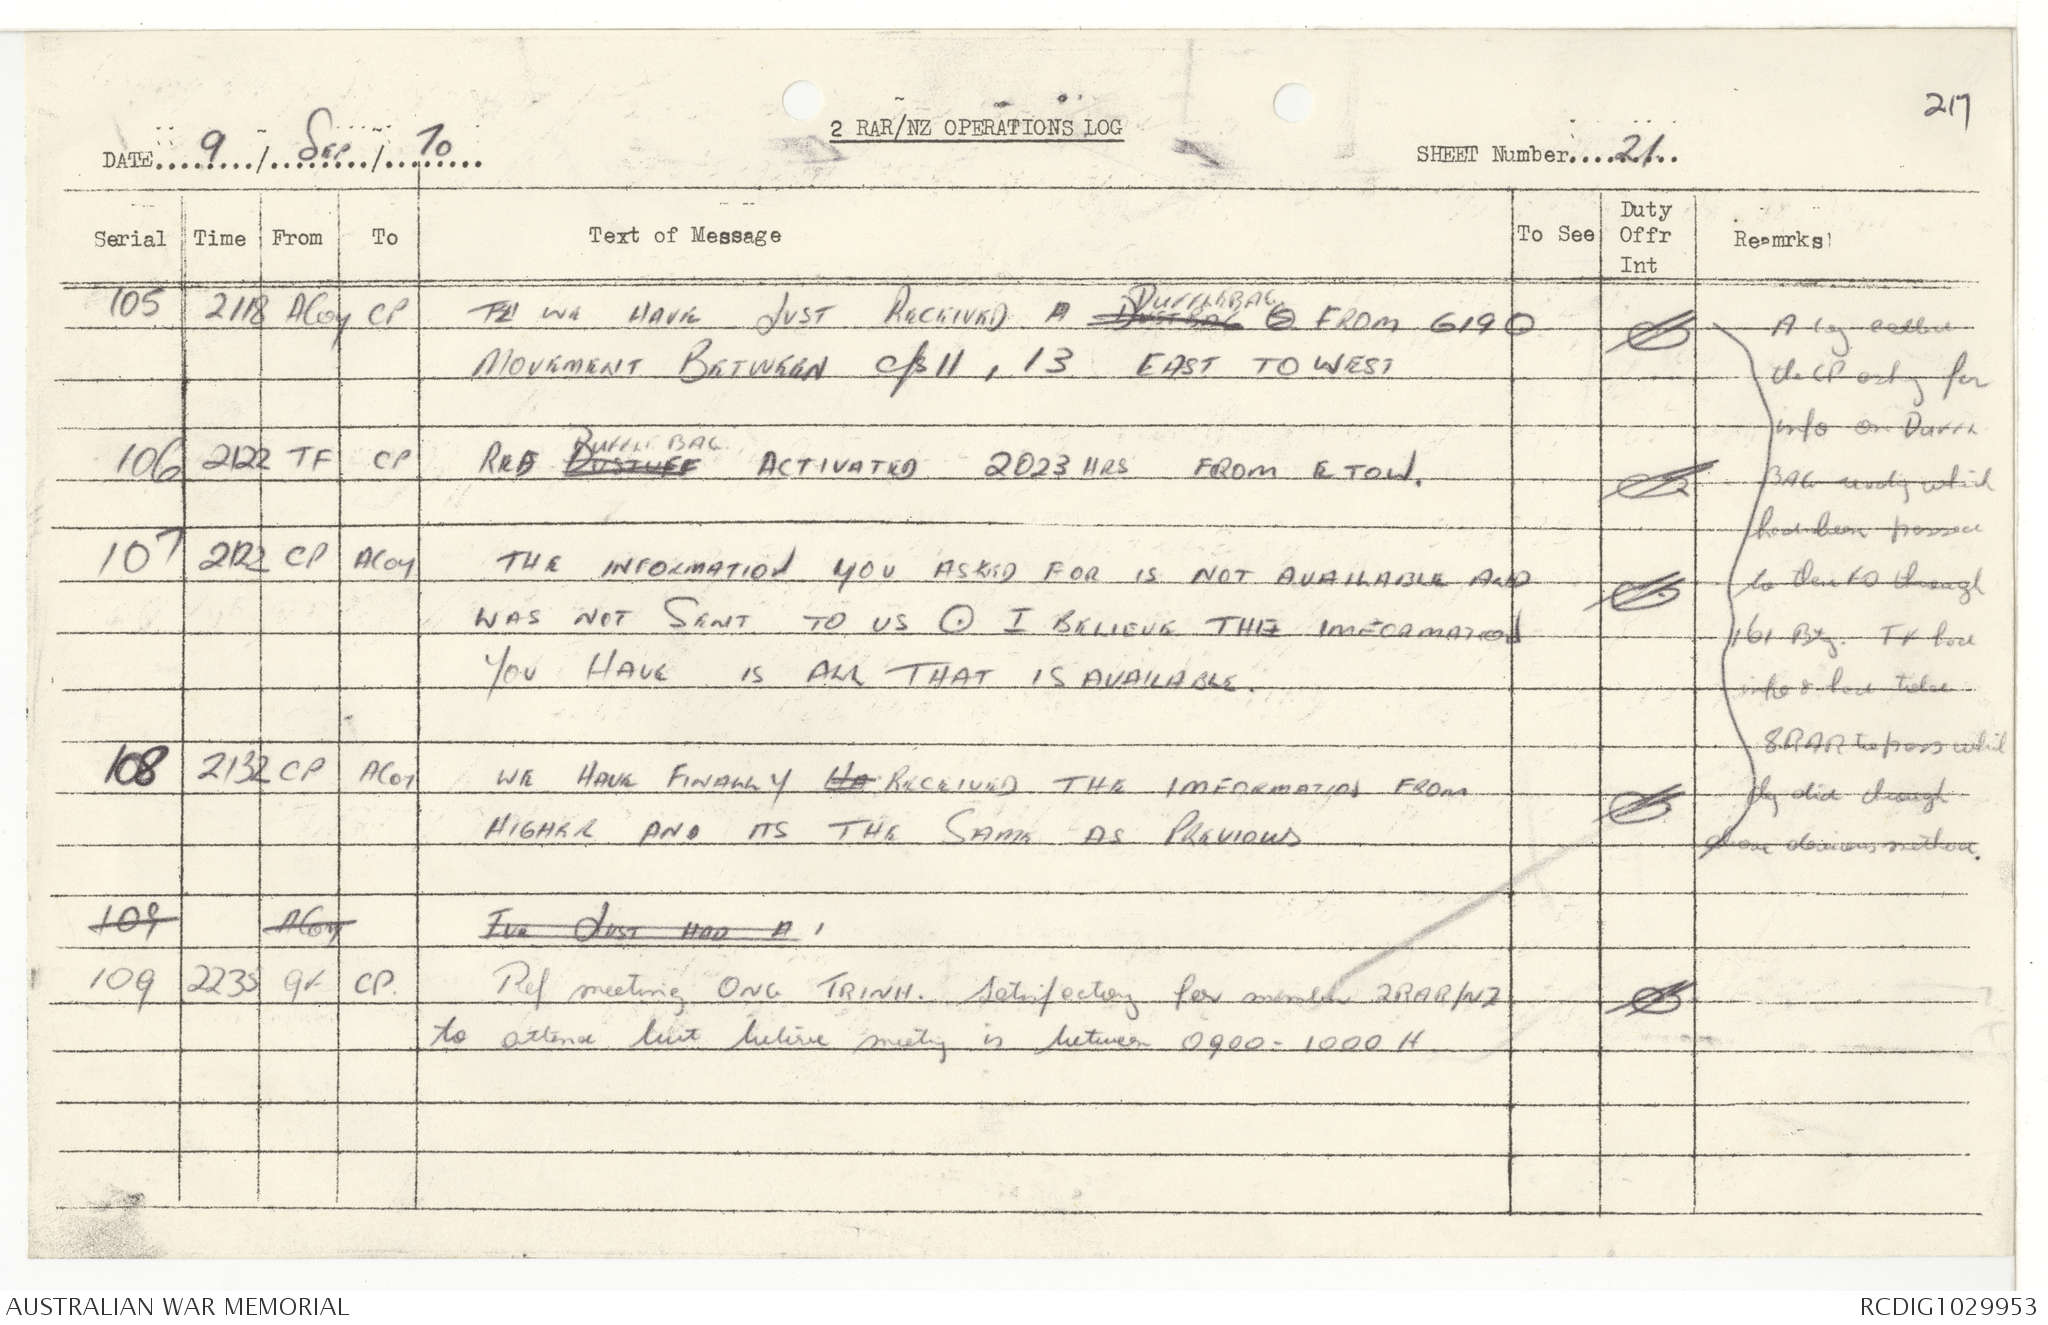 217
2 RAR/NZ OPERATIONS LOG
DATE....9..../....Sep..../....70....
SHEET Number....21....
Serial Time From To Text of Message To See Duty Offr Int Remrks
105 2118 ACoy CP WE HAVE JUST RECEIVED A DUSTBAG DUFFLEBAG FROM 6190
MOVEMENT BETWEEN C/S 11, 13 EAST TO WEST
106 2122 TF CP RED DUSTUFF DUFFLEBAG ACTIVATED 2023 HRS FROM E TO W.
107 2122 CP ACoy THE INFORMATION YOU ASKED FOR IS NOT AVAILABLE AND
WAS NOT SENT TO US ⊙ I BELIEVE THE IMFORMATION
YOU HAVE IS ALL THAT IS AVAILABLE.
108 2132 CP ACoy WE HAVE FINALLY HA RECEIVED THE IMFORMATION FROM
HIGHER AND ITS THE SAME AS PREVIOUS
109 ACoy I'VE JUST HAD A
109 2235 CP. Ref meeting ONG TRINH. Satisfactory for member 2RAR/NZ
to attend but believe meeting is between 0900 - 1000 H
A Coy called
the CP asking for
info on Duffle
BAG which
had been passed
to their through
161 Bty. TF had
info & had told
8RAR to pass which
they did through
devious method.
AUSTRALIAN WAR MEMORIAL
RCDIG1029953